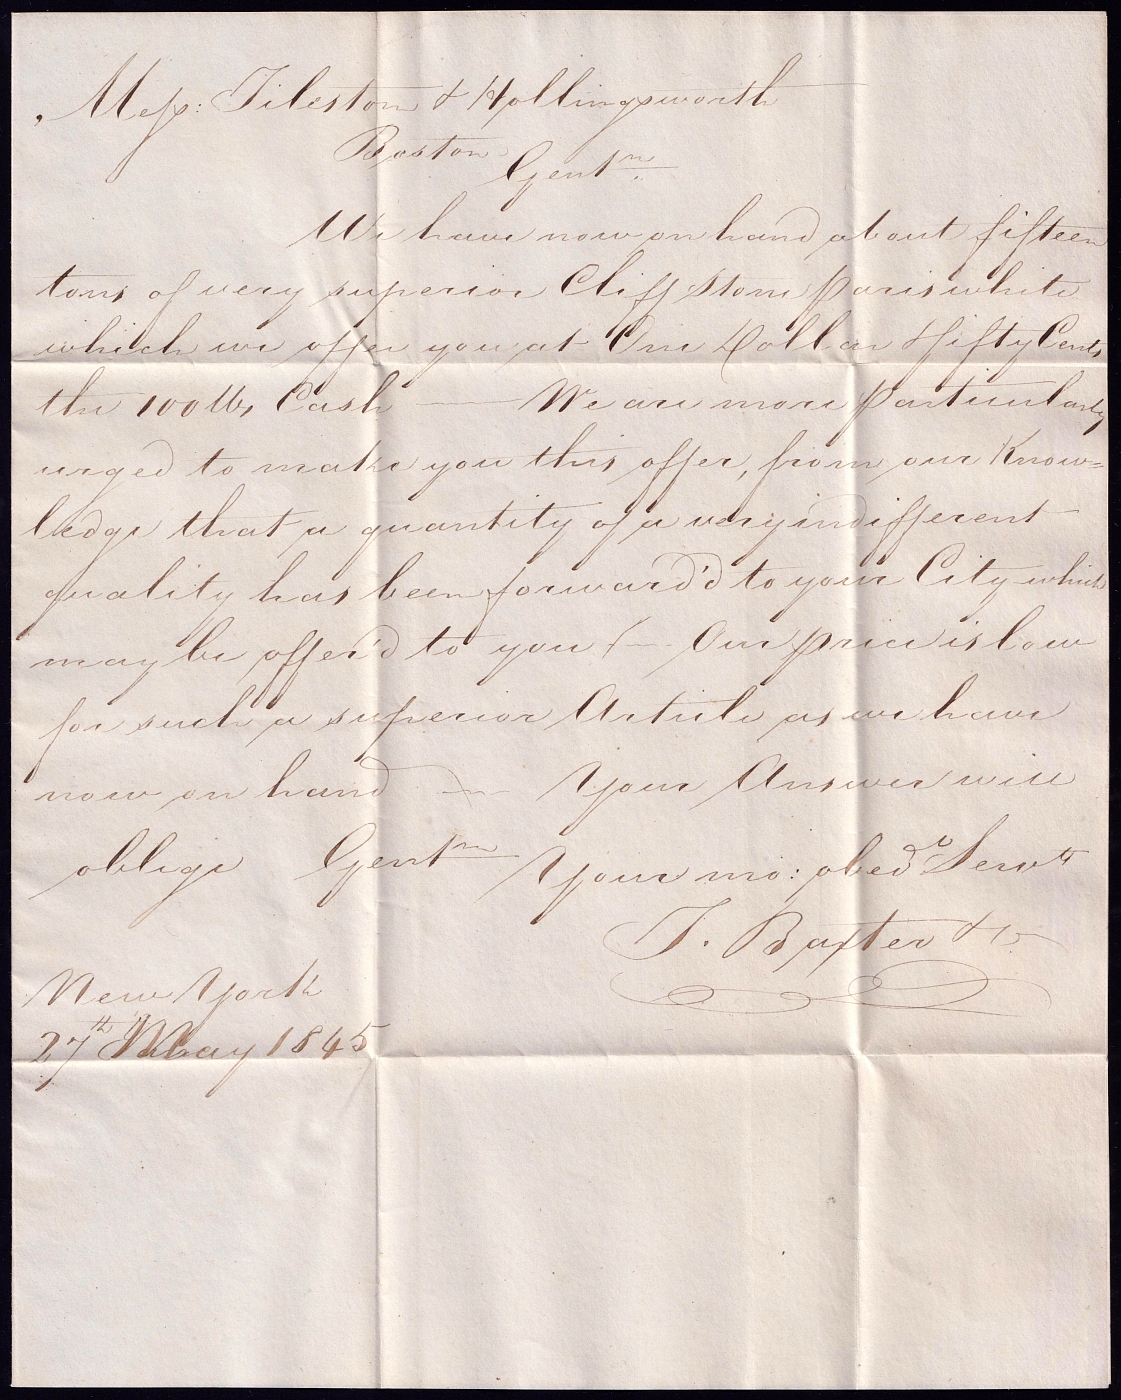 Mess: Tileston & Hollingsworth
Boston
Gentn
We have now on hand about fifteen
tons of very superior Cliff Stone Paris white
which we offer you at One Dollar & fifty Cents
the 100 lbs Cash — We are more particularly
urged to make you this offer, from our Know=
ledge that a quantity of a very indifferent
quality has been forward'd to your City which
may be offer'd to you — Our price is low
for such a superior Article as we have
now on hand — Your Answer will
oblige Gentn Your mo: obed Servts
T. Baxter & Co
New York
27th May 1845